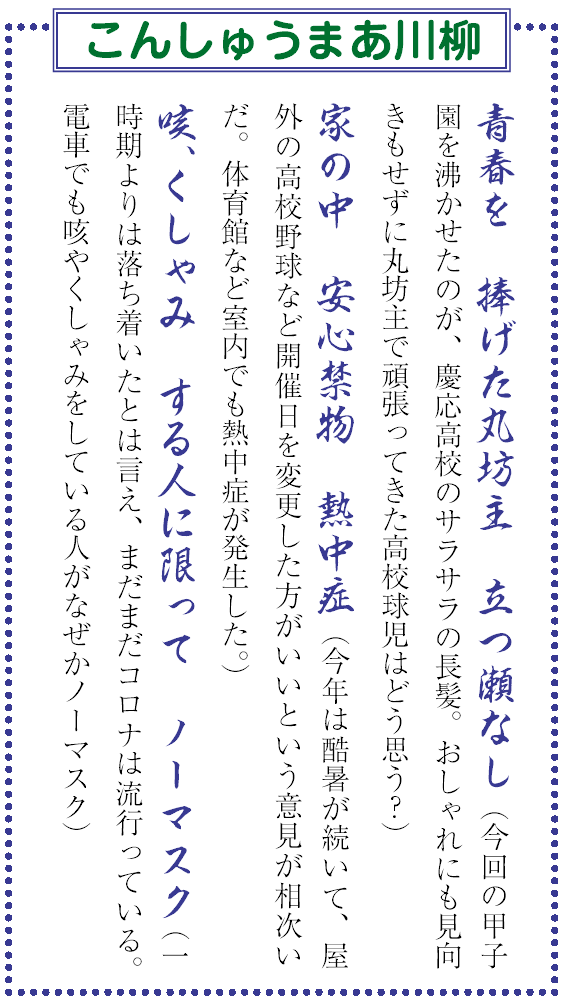 こんしゅうまあ川柳
青春を　捧げた丸坊主　立つ瀬なし（今回の甲子
園を沸かせたのが、慶応高校のサラサラの長髪。おしゃれにも見向
きもせずに丸坊主で頑張ってきた高校球児はどう思う？）
家の中　安心禁物　熱中症（今年は酷暑が続いて、屋
外の高校野球など開催日を変更した方がいいという意見が相次い
だ。体育館など室内でも熱中症が発生した。）
咳、くしゃみ　する人に限って　ノーマスク（一
時期よりは落ち着いたとは言え、まだまだコロナは流行っている。
電車でも咳やくしゃみをしている人がなぜかノーマスク）